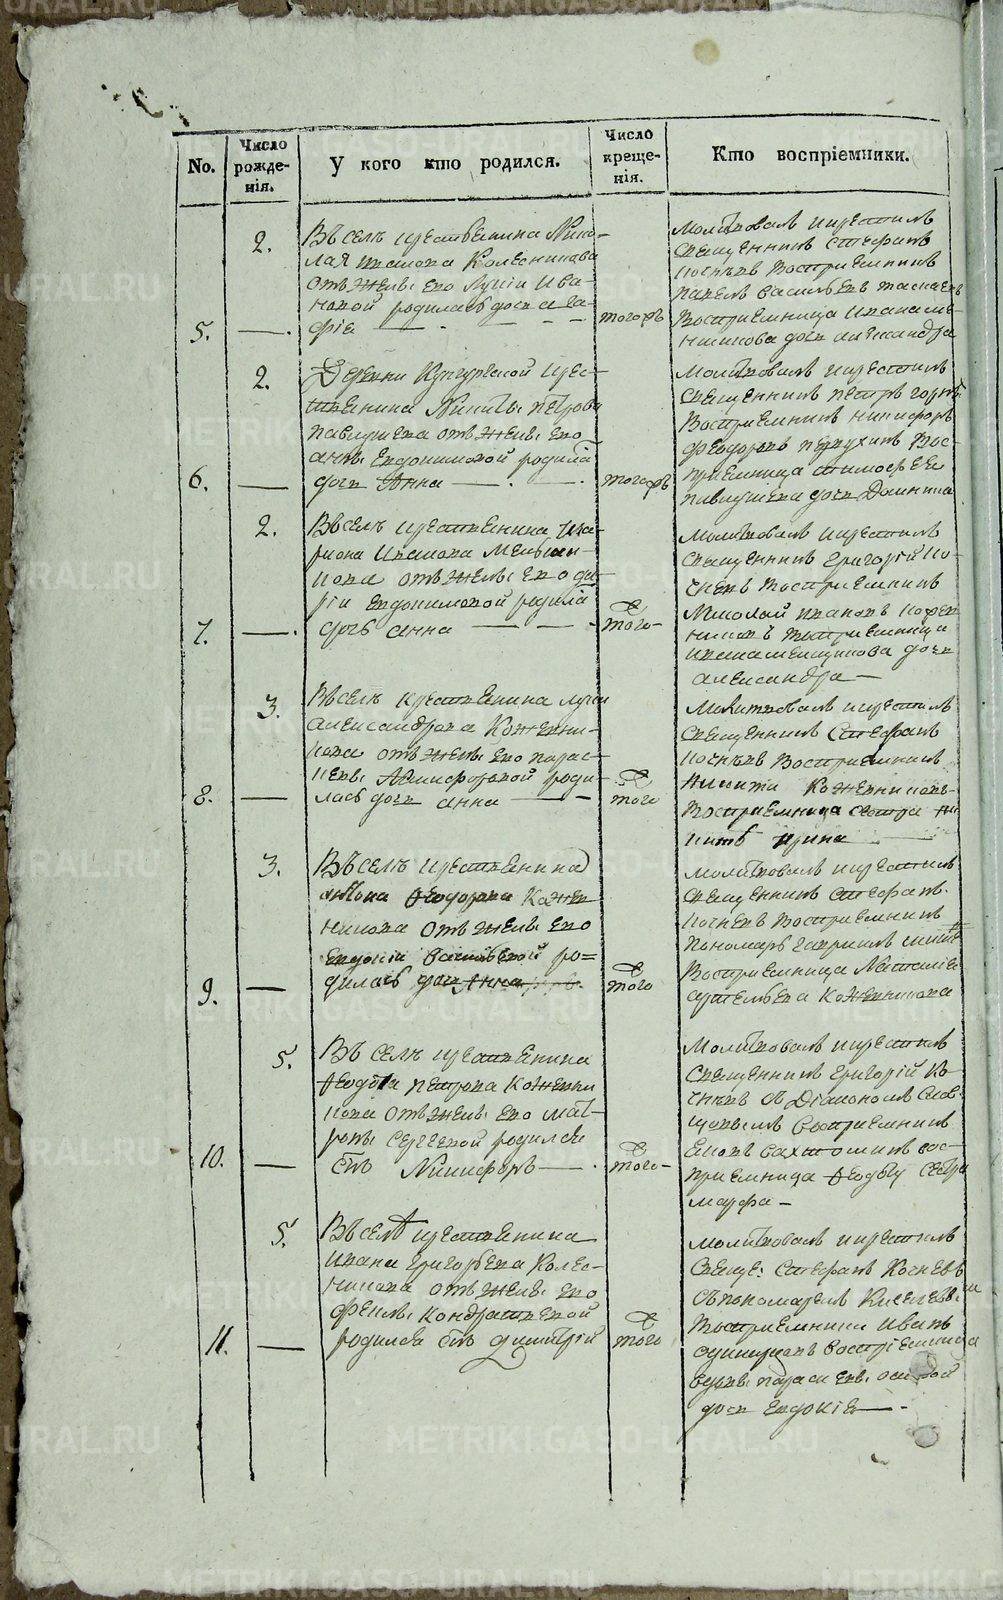 No.
Число рожде-нія.
У кого кто родился.
Число креще-нія.
Кто воспріемники.
5.
2.
Въ селѣ крестьянина Нико-
лая Иванова Колесникова
отъ жены его Лукіи Ива-
новой родилась дочь Ага-
фія
тогожъ
Молитвовалъ и крестилъ
священникъ Стефанъ
Кочневъ воспріемникъ
Павелъ Васильевъ
воспріемница Ивана
дочь Александра
6.
2.
Деревни Кунгурской крес-
тьянина Никиты Петрова
Павлушева отъ жены его
Анны Евдокимовой родила
дочь Анна
тогожъ
Молитвовалъ и крестилъ
священникъ Петръ
воспріемникъ Никифоръ
Феодоровъ вос-
пріемница Тимофея
Павлушева дочь Домника
7.
2.
Въ селѣ крестьянина Ила-
риона Иванова Мельни-
кова отъ жены его Да-
ріи Евдокимовой родила
дочь Анна
того
Молитвовалъ и крестилъ
священникъ Григорій Ко-
чневъ воспріемникъ
Николай Ивановъ
воспріемница
дочь
Александра
8.
3.
Въ селѣ крестьянина Луки
Александрова Кожевни-
кова отъ жены его Парас-
кевы Никифоровой роди-
лась дочь Анна
того
Молитвовалъ и крестилъ
священникъ Стефанъ
Кочневъ воспріемникъ
Никита Кожевниковъ
воспріемница сестра Ни-
киты Ирина
9.
3.
Въ селѣ крестьянина
Антона Ѳеодорова Кожев
никова отъ жены его
Евдокіи Васильевой ро-
дилась дочь Анна
того
Молитвовалъ и крестилъ
священникъ Стефанъ
Кочневъ воспріемникъ
пономарь Гавріилъ
воспріемница Наталія
Кожевникова
10.
5.
Въ селѣ крестьянина
Ѳедота Петрова Кожевни
кова отъ жены его Мат-
роны Сергеевой родился
сынъ Никифоръ
того
Молитвовалъ и крестилъ
священникъ Григорій Ко-
чневъ съ Діакономъ Слов-
цовымъ воспріемникъ
вос-
пріемница сестра
Марфа
11.
5.
Въ селѣ крестьянина
Ивана Григорьева Колес-
никова отъ жены его
Феклы Кондратьевой
родился сынъ Димитрій
того
Молитвовалъ и крестилъ
свяще: Стефанъ Кочневъ
съ пономаремъ Киселевымъ
воспріемники Иванъ
воспріемница
вдовы Параскевы
дочь Евдокія
METRIKI.GASO-URAL.RU